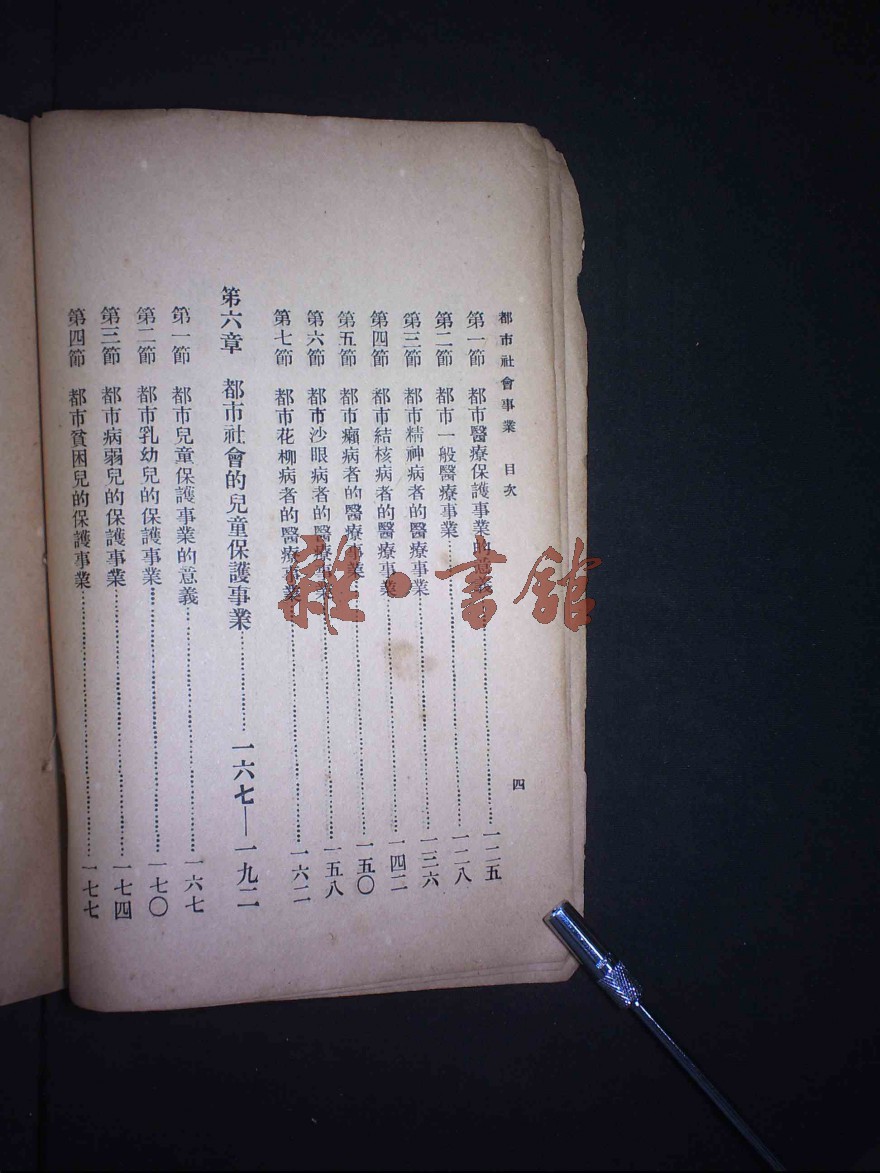 都市社會事業 目次
四
第一節 都市醫療保護事業的意義……一二五
第二節 都市一般醫療事業……一二八
第三節 都市精神病者的醫療事業……一三六
第四節 都市結核病者的醫療事業……一四二
第五節 都市癩病者的醫療事業……一五〇
第六節 都市沙眼病者的醫療事業……一五八
第七節 都市花柳病者的醫療事業……一六二
第六章 都市社會的兒童保護事業……一六七—一九二
第一節 都市兒童保護事業的意義……一六七
第二節 都市乳幼兒的保護事業……一七〇
第三節 都市病弱兒的保護事業……一七四
第四節 都市貧困兒的保護事業……一七七
雜·書館